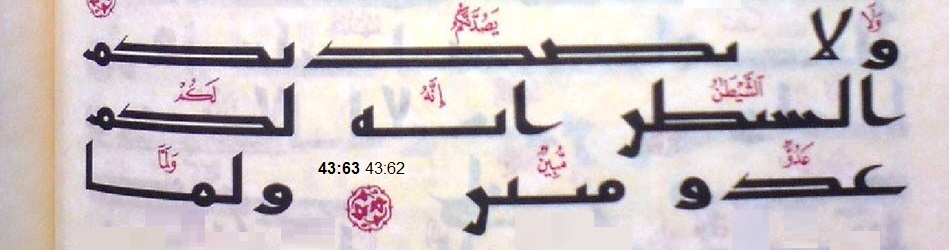 وَلَا يَصُدَّنَّكُمُ
ولا يصدنكم
الشَّيْطَٰنُ إِنَّهُ لَكُمْ
الشيطن انه لكم
عَدُوٌّ مُّبِينٌ وَلَمَّا
عدو مبين 43:63 43:62 ولما